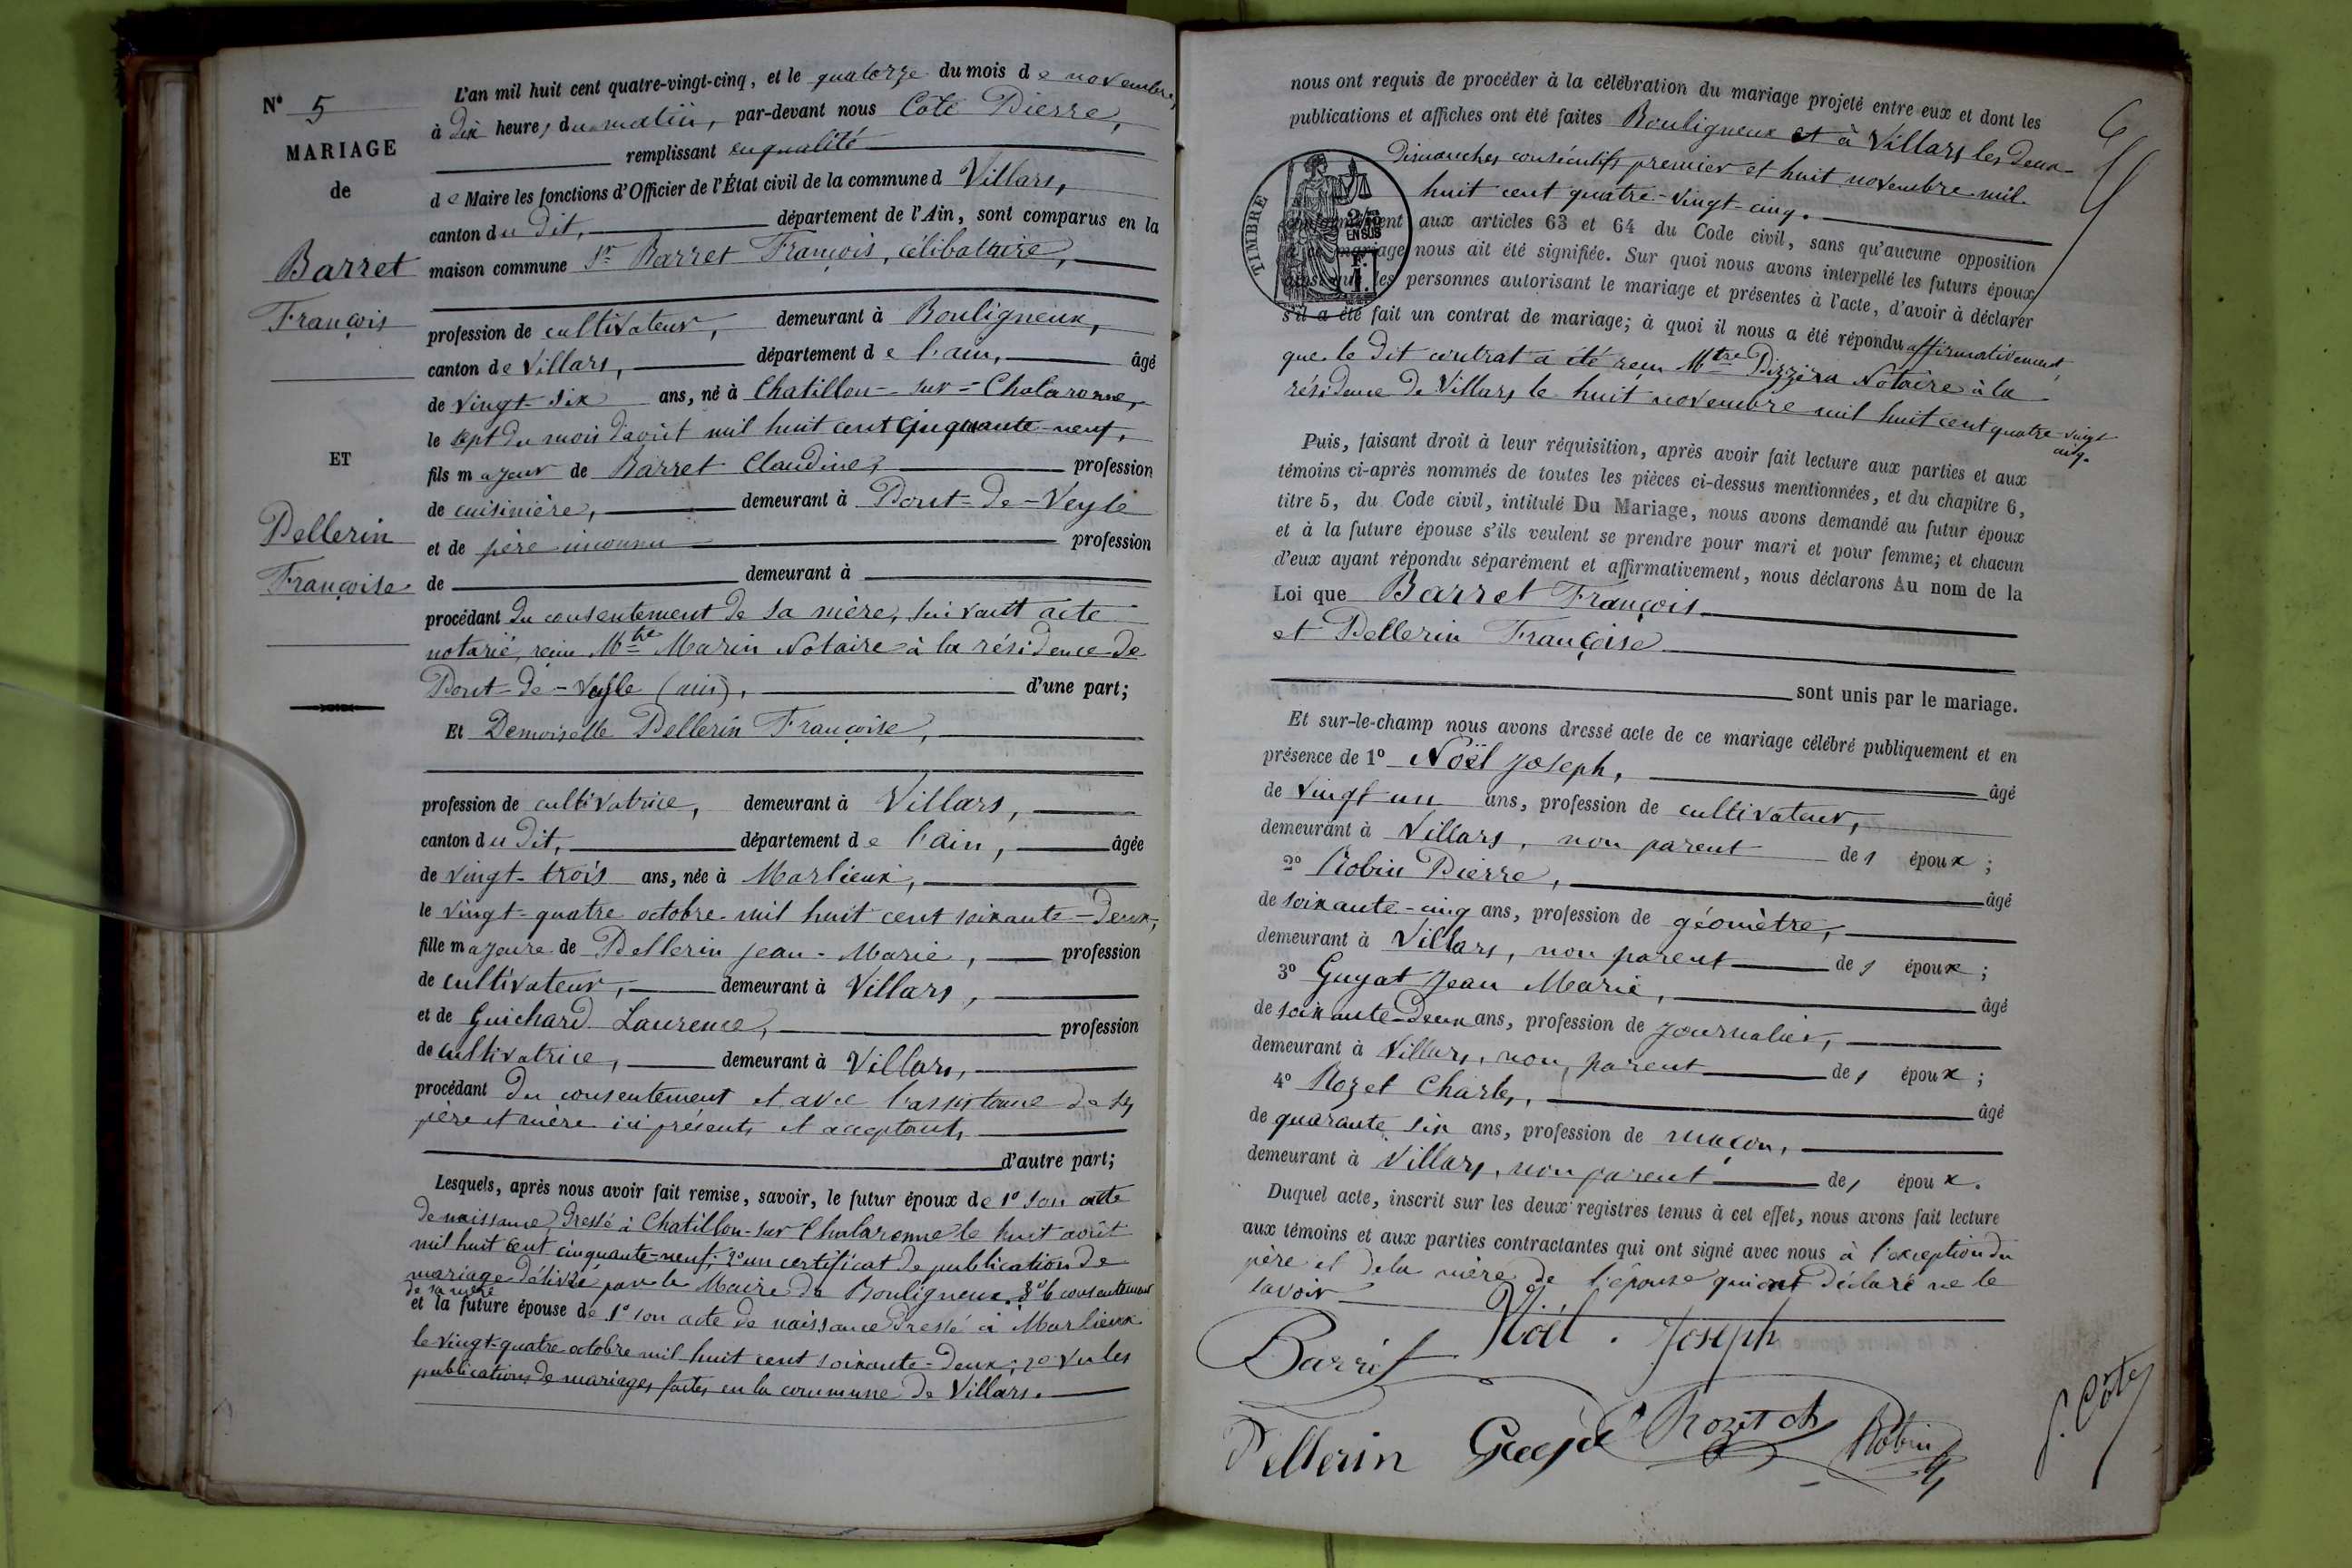 N° 5
MARIAGE
de
Barret
François
ET
Pellerin
Françoise
L'an mil huit cent quatre-vingt-cinq, et le quatorze du mois de novembre,
à dix heures du matin, par-devant nous Côte Pierre,
remplissant en qualité
de Maire les fonctions d'Officier de l'État civil de la commune d Villars,
canton du dit, département de l'Ain, sont comparus en la
maison commune Sr Barret François, célibataire,
profession de cultivateur, demeurant à Bouligneux,
canton de Villars, département de l'ain, âgé
de vingt-six ans, né à Chatillon-sur-Chalaronne,
le sept du mois d'août mil huit cent cinquante-neuf,
fils majeur de Barret Claudine, profession
de cuisinière, demeurant à Pont-de-Veyle
et de père inconnu profession
de demeurant à
procédant du consentement de sa mère, suivant acte
notarié, reçu Mtre Marin Notaire à la résidence de
Pont-de-Veyle (ain), d'une part;
Et Demoiselle Pellerin Françoise,
profession de cultivatrice, demeurant à Villars,
canton du dit, département de l'ain, âgée
de vingt-trois ans, née à Marlieux,
le vingt-quatre octobre mil huit cent soixante-deux,
fille majeure de Pellerin Jean-Marie, profession
de cultivateur, demeurant à Villars,
et de Guichard Laurence, profession
de cultivatrice, demeurant à Villars,
procédant du consentement et avec l'assistance de ses
père et mère ici présents et acceptants,
d'autre part;
Lesquels, après nous avoir fait remise, savoir, le futur époux de 1° son acte
de naissance dressé à Chatillon-sur Chalaronne le huit août
mil huit cent cinquante-neuf; 2° un certificat de publication de
mariage délivré par le Maire de Bouligneux. 3° le consentement
de sa mère
et la future épouse de 1° son acte de naissance dressé à Marlieux
le vingt-quatre octobre mil huit cent soixante-deux; 2° vu les
publications de mariages faites en la commune de Villars.
6
nous ont requis de procéder à la célébration du mariage projeté entre eux et dont les
publications et affiches ont été faites Bouligneux et à Villars les deux
dimanches consécutifs premier et huit novembre mil
huit cent quatre-vingt-cinq.
TIMBRE
2/10
EN SUS
1 F.
conformément aux articles 63 et 64 du Code civil, sans qu'aucune opposition
à ce mariage nous ait été signifiée. Sur quoi nous avons interpellé les futurs époux
ainsi que les personnes autorisant le mariage et présentes à l'acte, d'avoir à déclarer
s'il a été fait un contrat de mariage; à quoi il nous a été répondu affirmativement,
que le dit contrat a été reçu Mtre Pizzera Notaire à la
résidence de Villars le huit novembre mil huit cent quatre-vingt
cinq.
Puis, faisant droit à leur réquisition, après avoir fait lecture aux parties et aux
témoins ci-après nommés de toutes les pièces ci-dessus mentionnées, et du chapitre 6,
titre 5, du Code civil, intitulé Du Mariage, nous avons demandé au futur époux
et à la future épouse s'ils veulent se prendre pour mari et pour femme; et chacun
d'eux ayant répondu séparément et affirmativement, nous déclarons Au nom de la
Loi que Barret François
et Pellerin Françoise
sont unis par le mariage.
Et sur-le-champ nous avons dressé acte de ce mariage célébré publiquement et en
présence de 1° Noël Joseph, âgé
de vingt un ans, profession de cultivateur,
demeurant à Villars, non parent des époux;
2° Robin Pierre, âgé
de soixante-cinq ans, profession de géomètre,
demeurant à Villars, non parent des époux;
3° Guyat Jean Marie, âgé
de soixante-deux ans, profession de journalier,
demeurant à Villars, non parent des époux;
4° Rozet Charles, âgé
de quarante six ans, profession de maçon,
demeurant à Villars, non parent des époux.
Duquel acte, inscrit sur les deux registres tenus à cet effet, nous avons fait lecture
aux témoins et aux parties contractantes qui ont signé avec nous à l'exception du
père et de la mère de l'épouse qui ont déclaré ne le
savoir
Barret Noël. Joseph
Pellerin Rozet ch Robin
P. Côte